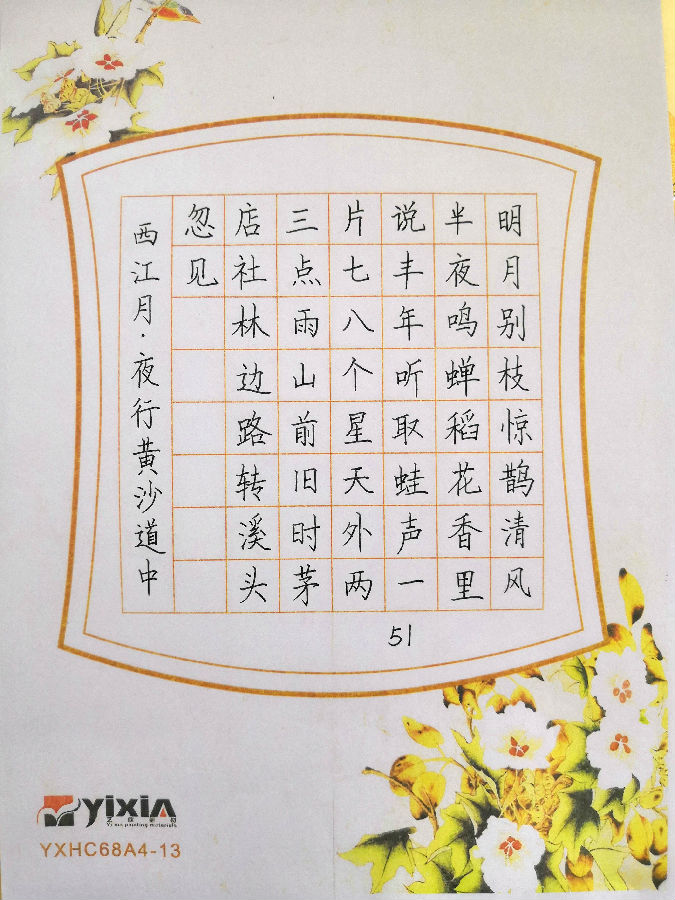 明月别枝惊鹊清风
半夜鸣蝉稻花香里
说丰年听取蛙声一
片七八个星天外两
三点雨山前旧时茅
店社林边路转溪头
忽见
西江月·夜行黄沙道中
51
yixin
Yi xin painting materials
YXHC68A4-13